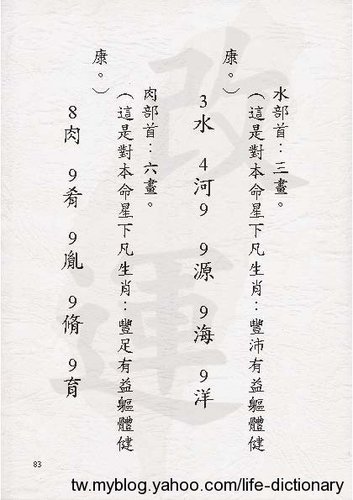 水部首：三畫。
（這是對本命星下凡生肖：豐沛有益軀體健
康。）
3水 4河9 9源 9海 9洋
肉部首：六畫。
（這是對本命星下凡生肖：豐足有益軀體健
康。）
8肉 9肴 9胤 9脩 9育
改運
83
tw.myblog.yahoo.com/life-dictionary